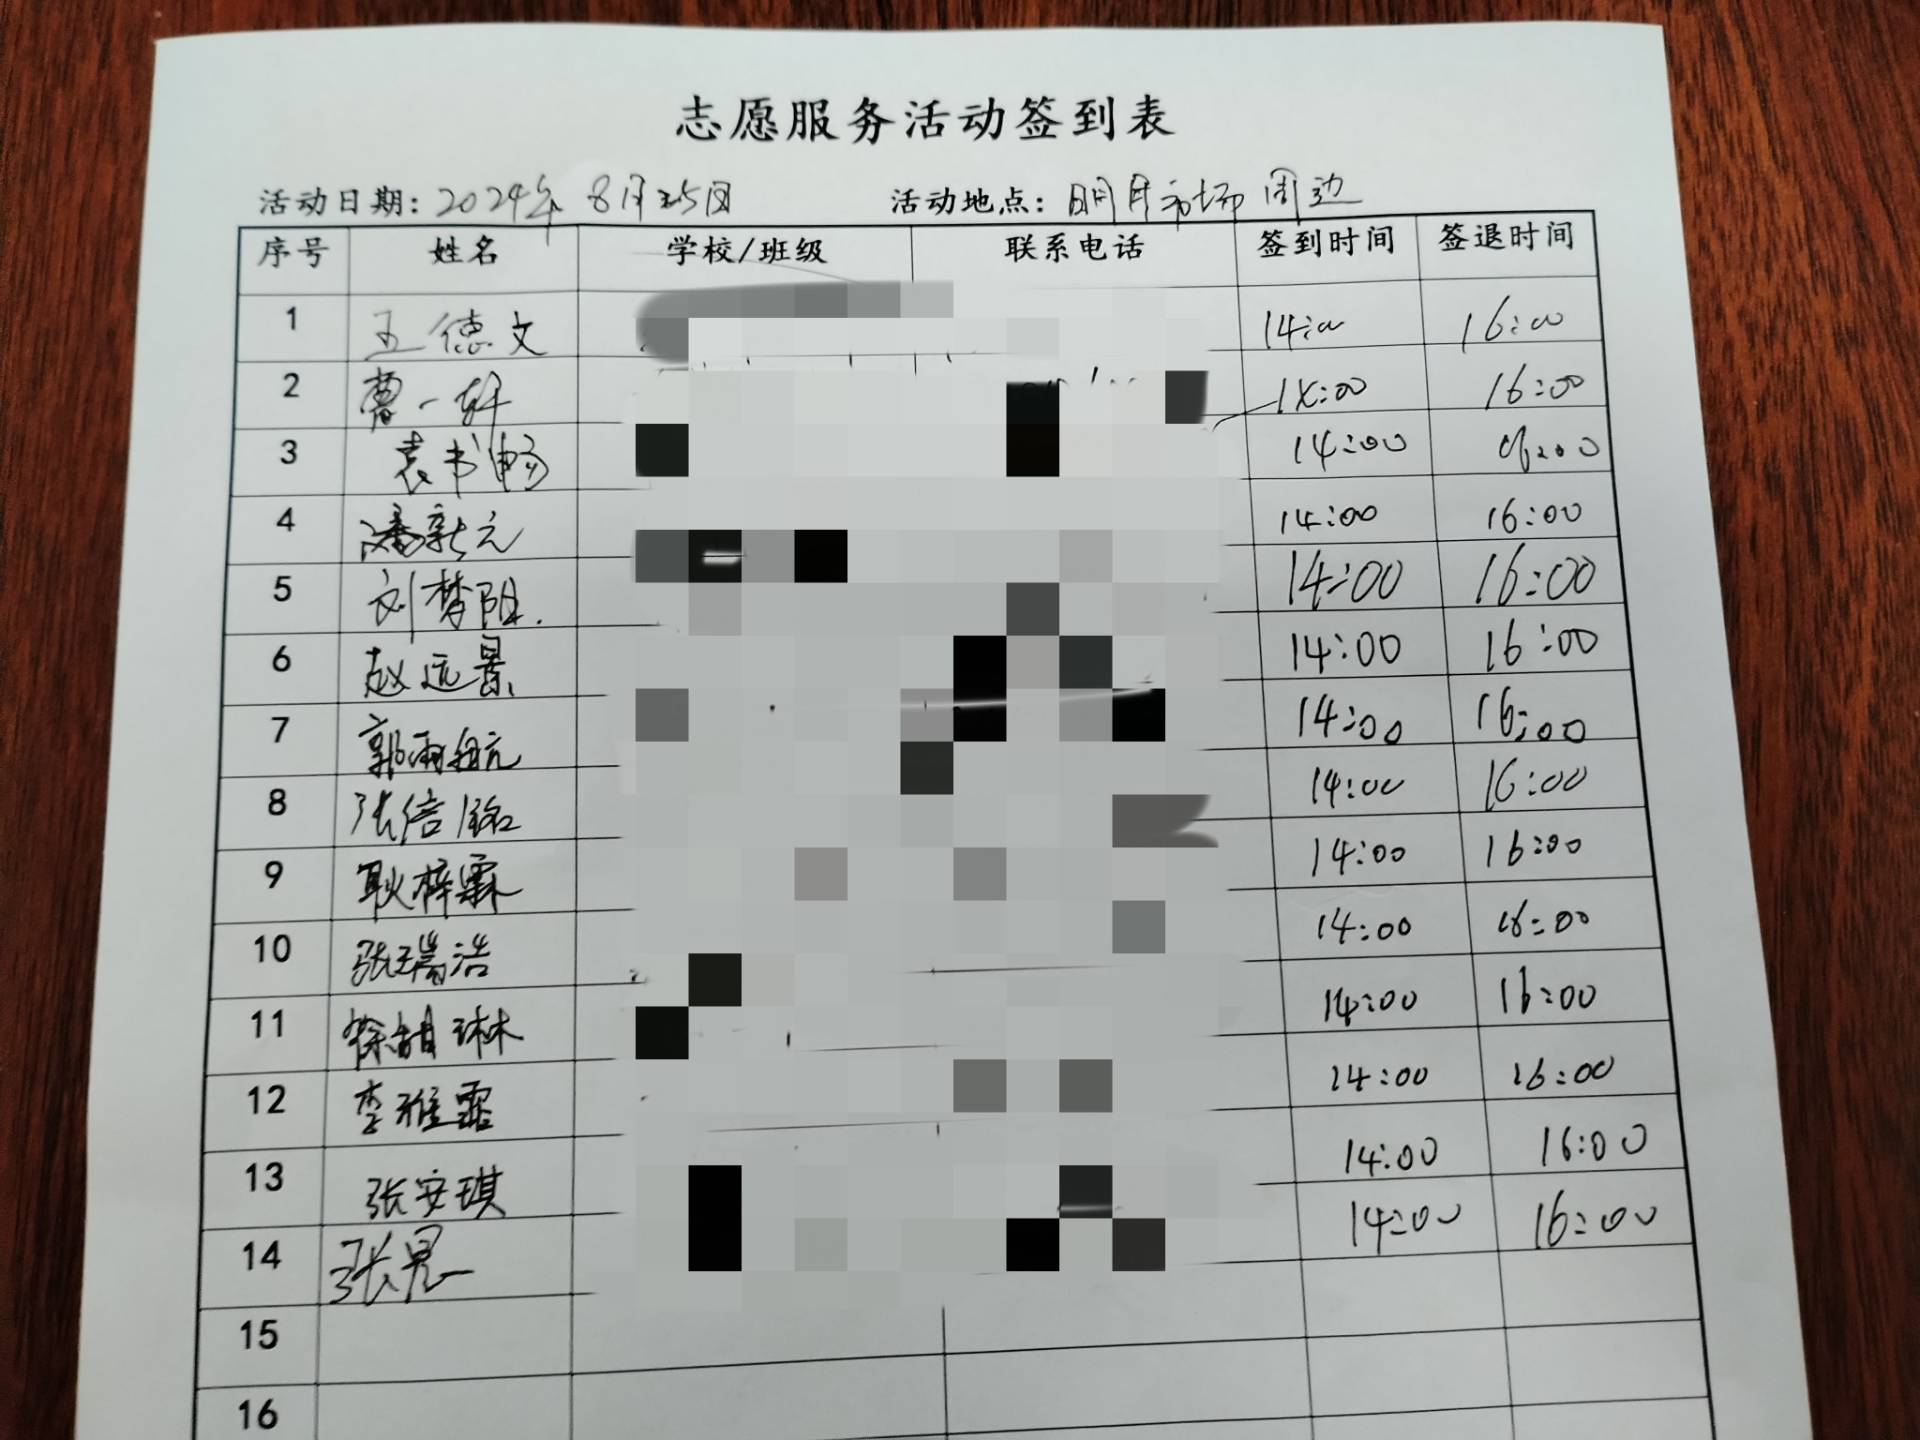 志愿服务活动签到表
活动日期：2024年 8月25日 活动地点：明月市场周边
序号 姓名 学校/班级 联系电话 签到时间 签退时间
1 王德文 14:00 16:00
2 曹一轩 14:00 16:00
3 袁书畅 14:00 16:00
4 潘新元 14:00 16:00
5 刘梦阳. 14:00 16:00
6 赵远景 14:00 16:00
7 郭雨航 14:00 16:00
8 张信铭 14:00 16:00
9 耿梓霖 14:00 16:00
10 张瑞浩 14:00 16:00
11 徐甜琳 14:00 16:00
12 李雅霏 14:00 16:00
13 张安琪 14:00 16:00
14 张 14:00 16:00
15
16